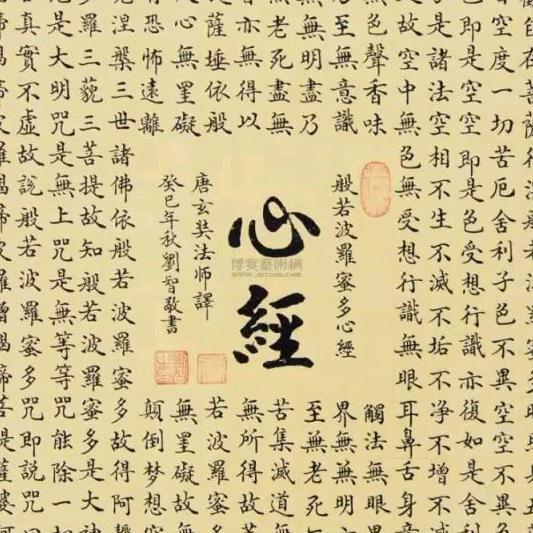 自在菩薩行深般
空度一切苦厄舍利子色不異空空不異
即是空空即是色受想行識亦復如是舍利
是諸法空相不生不滅不垢不淨不增不
故空中無色無受想行識無眼耳鼻舌身意
無色聲香味
觸法無眼
至無意識
界無無明
無明盡乃
至無老死
老死盡無
苦集滅道無
亦無得以
無所得故
薩埵依般
若波羅蜜多
心無罣礙
無罣礙故
有恐怖遠離
顛倒梦想
般若波羅蜜多心經
心經
唐玄奘法师譯
癸巳年秋劉智敬書
博寶藝術網
涅槃三世諸佛依般若波羅蜜多故得阿
多羅三藐三菩提故知般若波羅蜜多是大神
是大明咒是無上咒是無等等咒能除一切
真實不虛故說般若波羅蜜多咒即説咒
羅揭諦波羅僧揭諦菩提薩婆訶